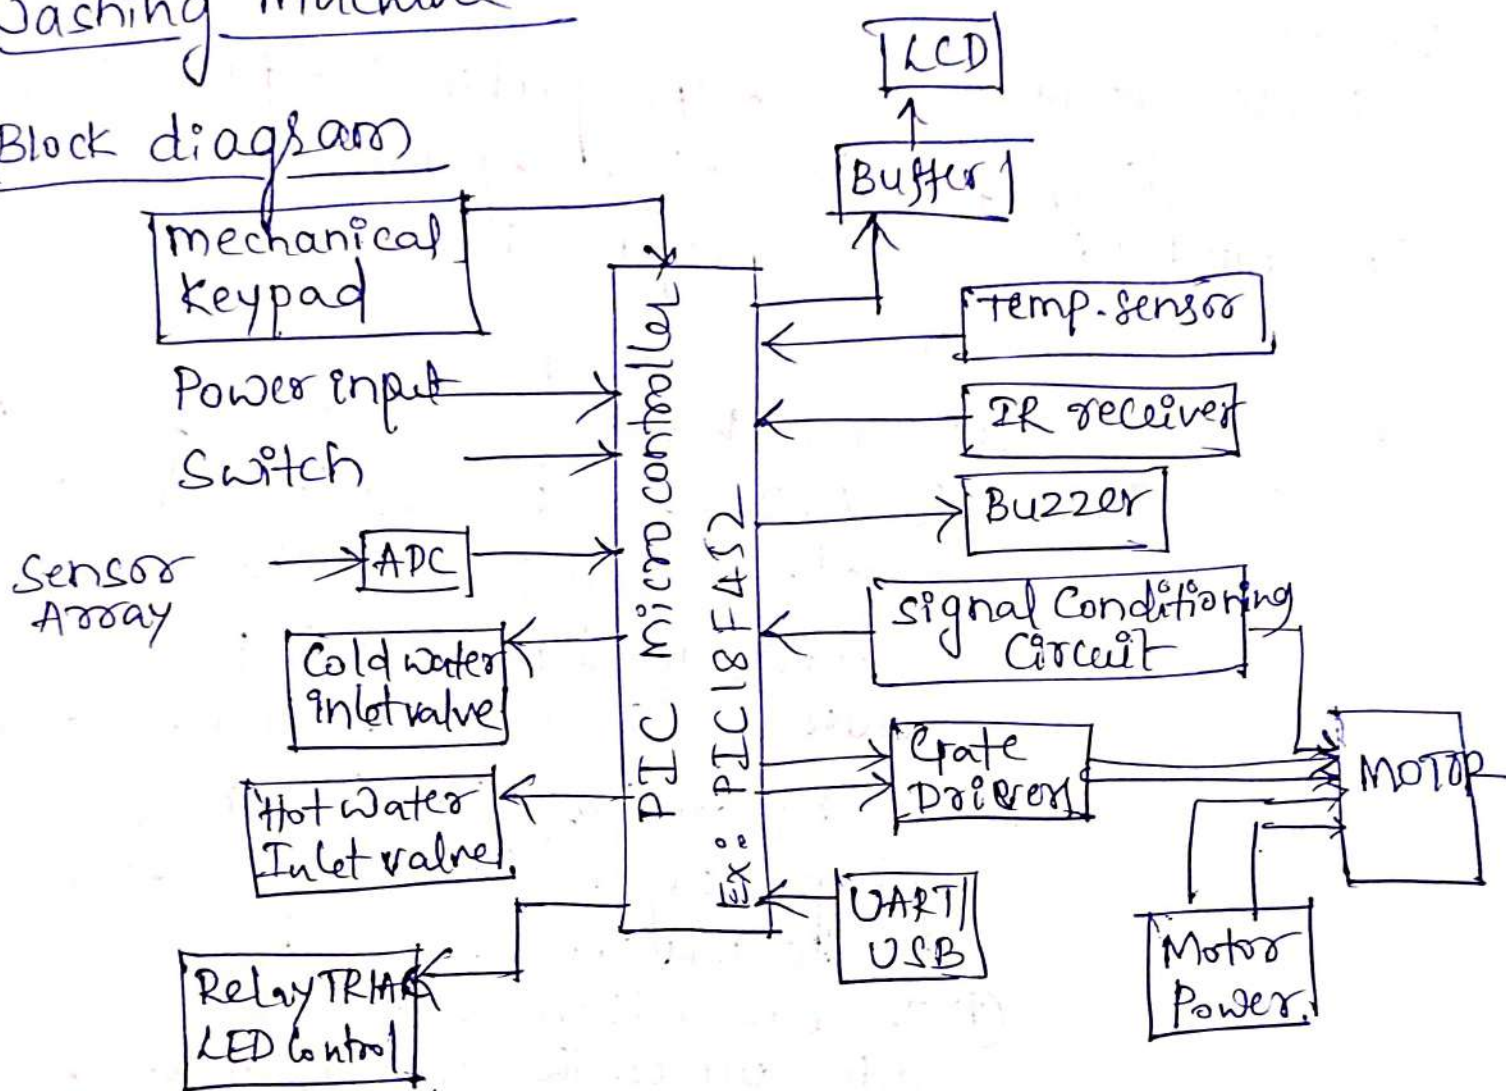 Washing Machine
Block diagram
LCD
Buffer
mechanical
Keypad
Power input
Switch
Sensor
Array
ADC
Cold water
inlet valve
Hot Water
Inlet valve
Relay TRIAC
LED Control
PIC microcontroller
Ex: PIC18F452
Temp. sensor
IR receiver
Buzzer
Signal Conditioning
Circuit
Gate
Drivers
MOTOR
UART/
USB
Motor
Power.